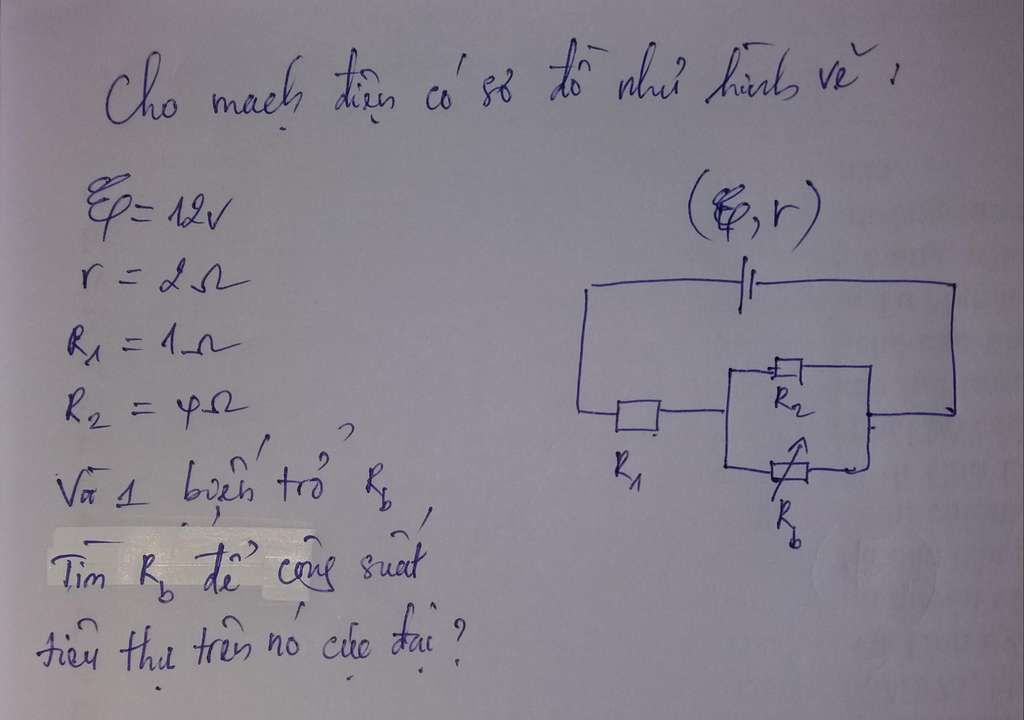 Cho mạch điện có sơ đồ như hình vẽ:
ξ = 12V
r = 2Ω
R₁ = 1Ω
R₂ = 4Ω
Và 1 biến trở R_b
Tìm R_b để công suất
tiêu thụ trên nó cực đại?
(ξ, r)
R₂
R₁
R_b